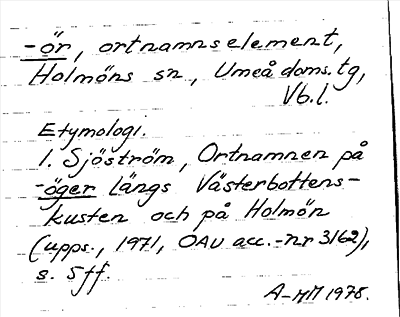 -ör, ortnamnselement,
Holmöns sn, Umeå doms.tg,
Vb.l.
Etymologi.
I. Sjöström, Ortnamnen på
-öger längs Västerbottens-
kusten och på Holmön
(upps., 1971, OAU acc.-nr 3162),
s. 5ff.
A-MM 1978.